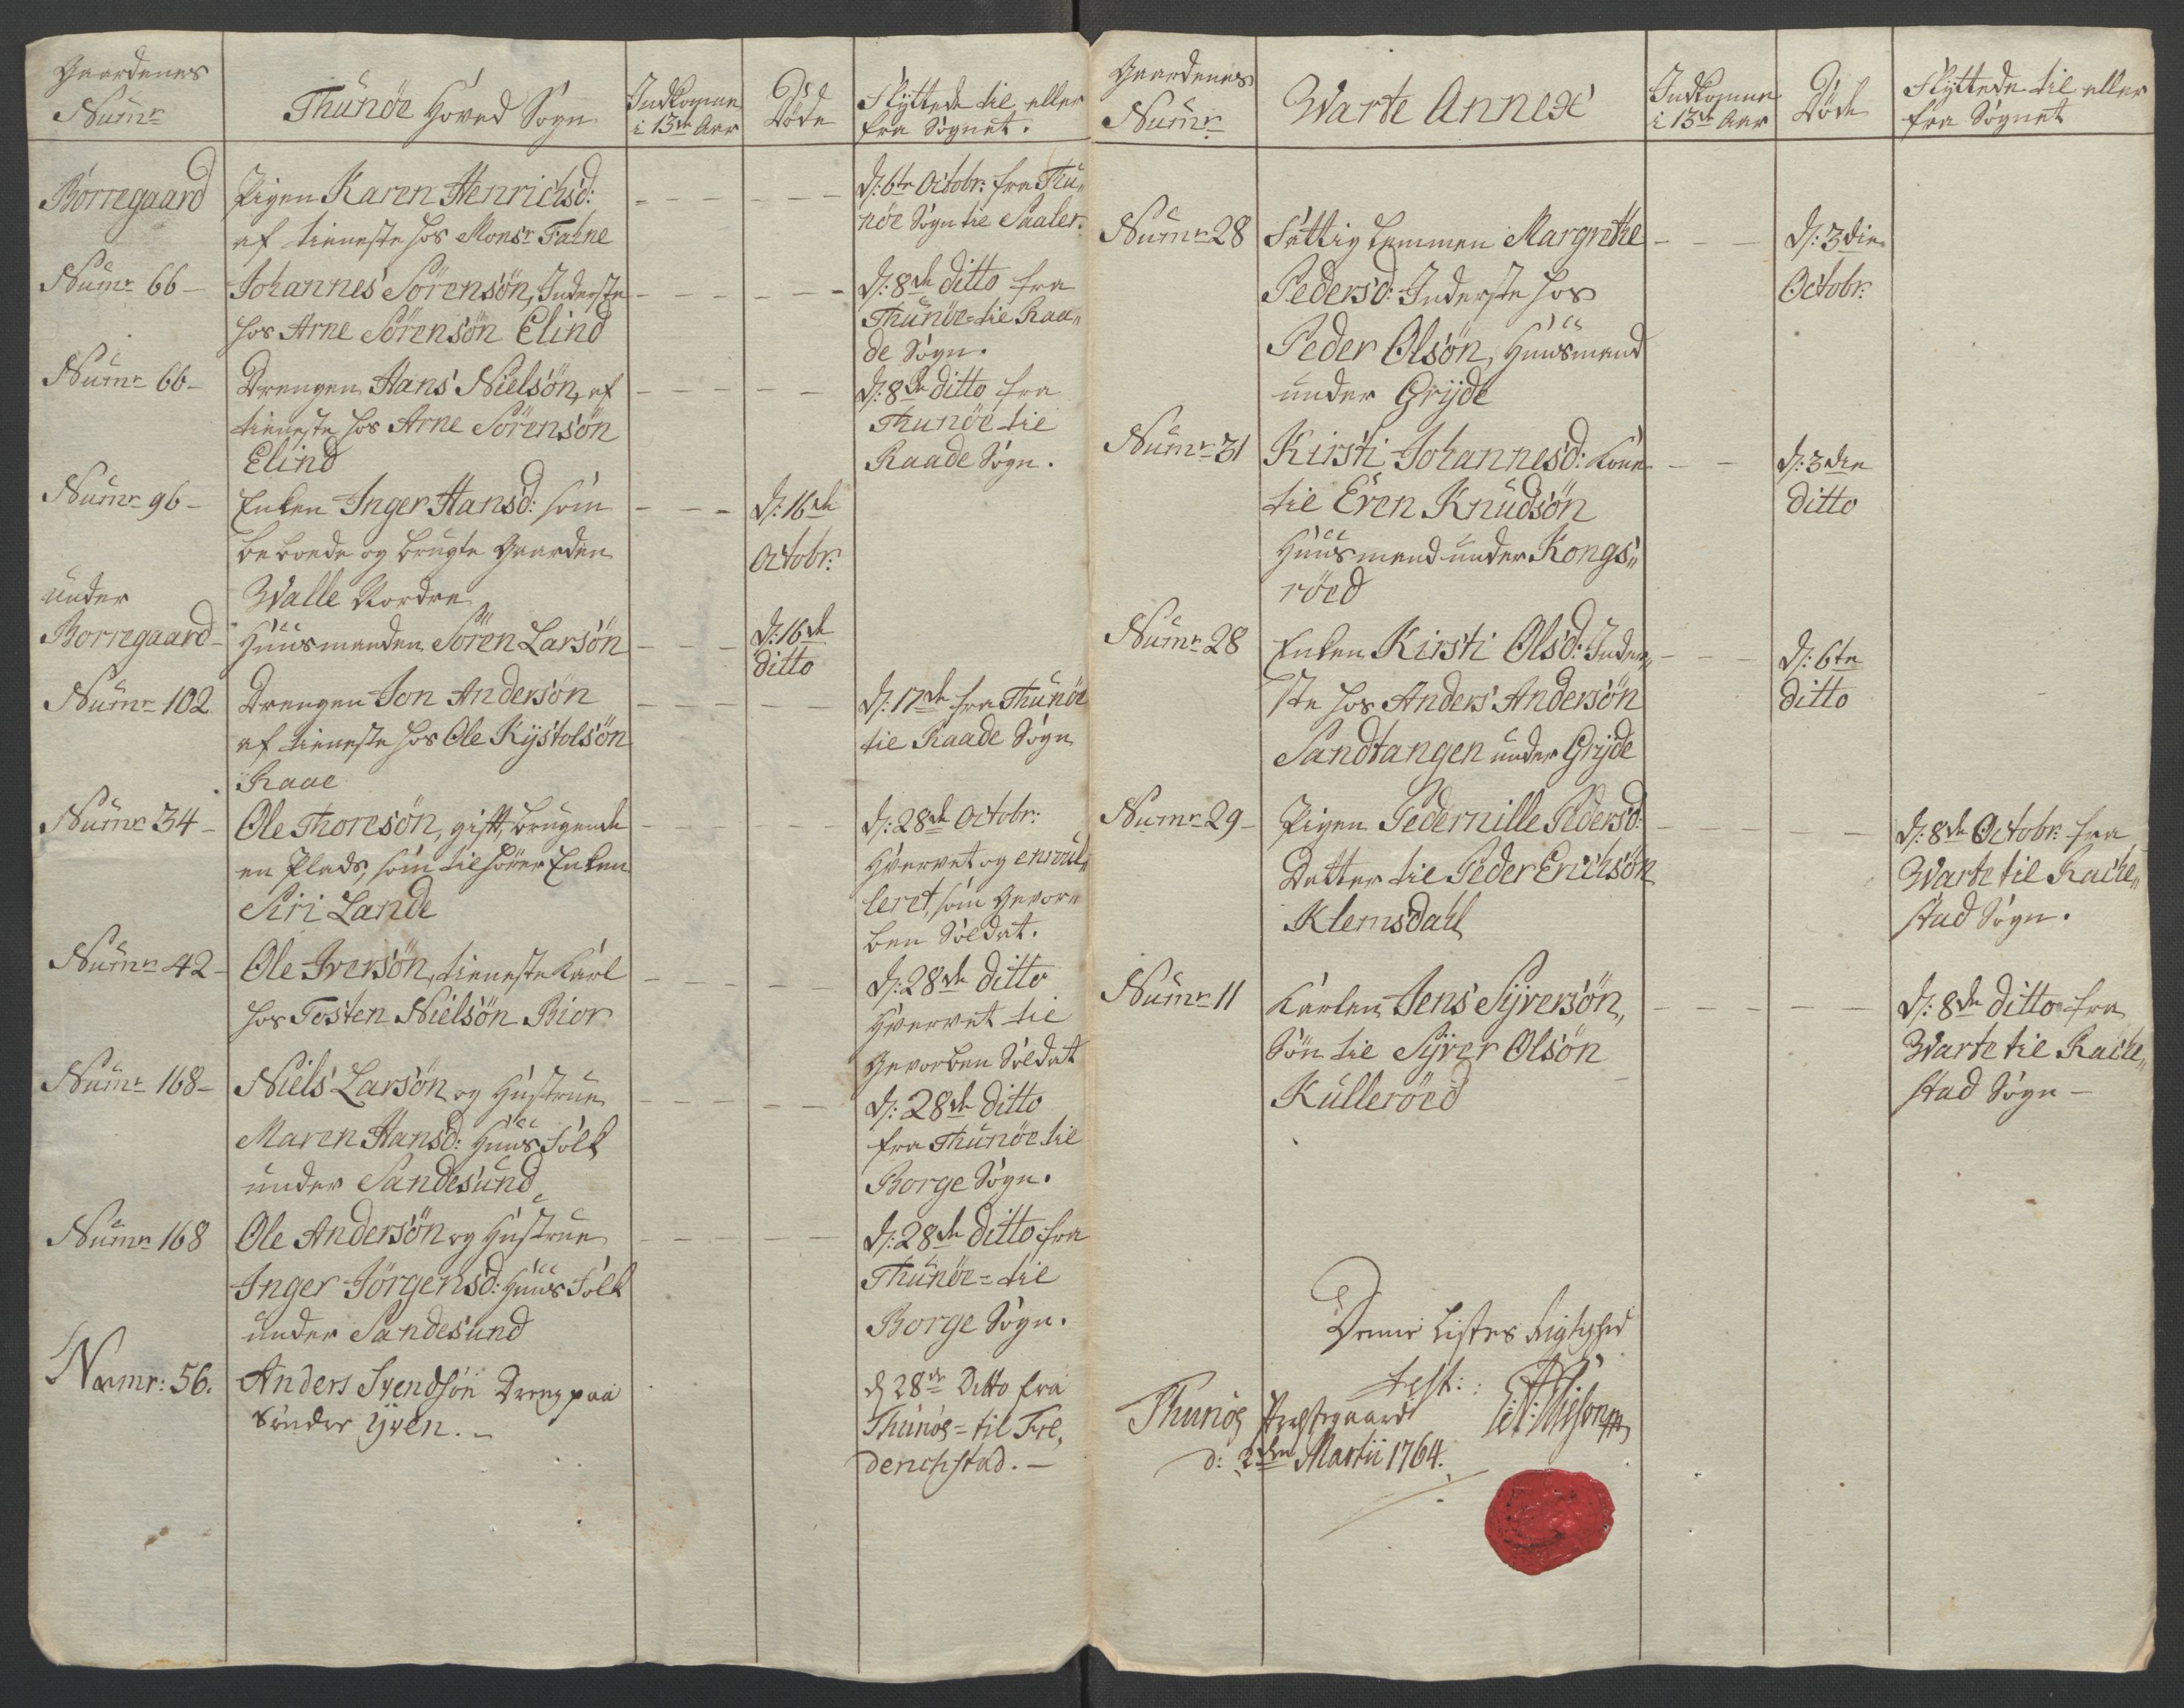 Gaardenes
Numr
Thunöe Hoved Sogn
Indkomne
i 13de Aar
Döde
Flyttede til eller
fra Sognet.
Borregaard
Pigen Karen Henrichsd:
af tieneste hos Monsr Falne
d: 6te Octobr: fra Thu„
nöe Sogn til Saaler.
Numr 66 –
Johannes Sörensön, Inderste
hos Arne Sörensön Elind
d: 8de ditto fra
Thunöe til Raa„
de Sogn.
Numr 66 –
Drengen Hans Nielsön, af
tieneste hos Arne Sörensön
Elind
d: 8de ditto fra
Thunöe til
Raade Sogn.
Numr 96 –
Enken Inger Hansd: som
beboede og brugte Gaarden
Walle Nordre
d: 16de
Octobr:
under
Borregaard –
Huusmanden Sören Larsön
d: 16de
ditto
Numr 102
Drengen Jon Andersön
af tieneste hos Ole Kystolsön
Raae
d: 17de fra Thunöe
til Raade Sogn
Numr 34 –
Ole Thoresön, gift, brugende
en Plads, som tilhörer Enken
Siri Lande
d: 28de Octobr:
Hvervet og enroul„
leret, som Gevor„
ben Soldat.
Numr 42 –
Ole Iversön, tieneste Karl
hos Tosten Nielsön Bior
d: 28de ditto
Hvervet til
Gevorben Soldat
Numr 168 –
Niels Larsön og Hustrue
Maren Hansd: Huus Folk
under Sandesund
d: 28de ditto
fra Thunöe til
Borge Sogn.
Numr 168
Ole Andersön og Hustrue
Inger Jörgensd: Huus Folk
under Sandesund
d: 28de ditto fra
Thunöe = til
Borge Sogn.
Numr: 56.
Anders Svendsön Dreng paa
Sönder Yven. –
d 28de Ditto fra
Thunöe = til Fre„
derichstad. –
Gaardenes
Numr
Warte Annexe
Indkomne
i 13de Aar
Döde
Flyttede til eller
fra Sognet
Numr 28
Fattig Lemmen Margrethe
Pedersd: Inderste hos
Peder Olsön, Huusmand
under Gryde
d: 3die
Octobr:
Numr 31
Kirsti Johannesd: Kone
til Even Knudsön
Huusmand under Kongs„
röed
d: 3die
ditto
Numr 28
Enken Kirsti Olsd: Inder„
ste hos Anders Andersön
Sandtangen under Gryde
d: 6te
ditto
Numr 29 –
Pigen Pedernille Pedersd:
Datter til Peder Erichsön
Klemsdahl
d: 8de Octobr: fra
Warte til Rache„
stad Sogn.
Numr 11
Karlen Jens Syversön,
Sön til Syver Olsön
Kulleröed
d: 8de ditto fra
Warte til Rache„
stad Sogn –
Denne Listes Rigtighed
test:
Thunöe Præstegaard
d: 2den Martii 1764.